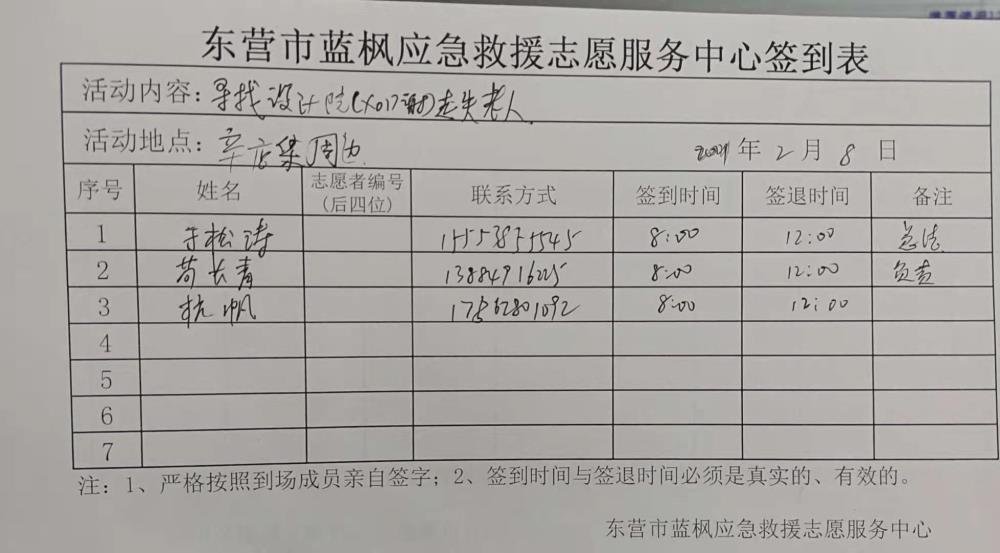 东营市蓝枫应急救援志愿服务中心签到表
活动内容：寻找设计院走失老人
活动地点：辛店集周边 2021年2月8日
序号 姓名 志愿者编号(后四位) 联系方式 签到时间 签退时间 备注
1 松涛 8:00 12:00
2 苟长青 13884916225 8:00 12:00 负责
3 杭帆 17562801092 8:00 12:00
4
5
6
7
注：1、严格按照到场成员亲自签字；2、签到时间与签退时间必须是真实的、有效的。
东营市蓝枫应急救援志愿服务中心